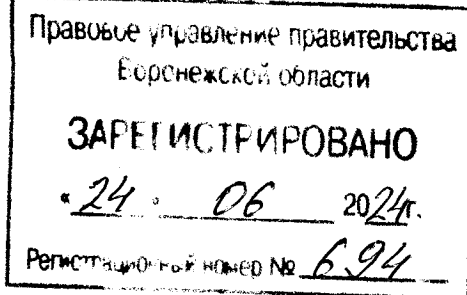 Правовое управление правительства
Воронежской области
ЗАРЕГИСТРИРОВАНО
«24» 06 2024г.
Регистрационный номер № 694